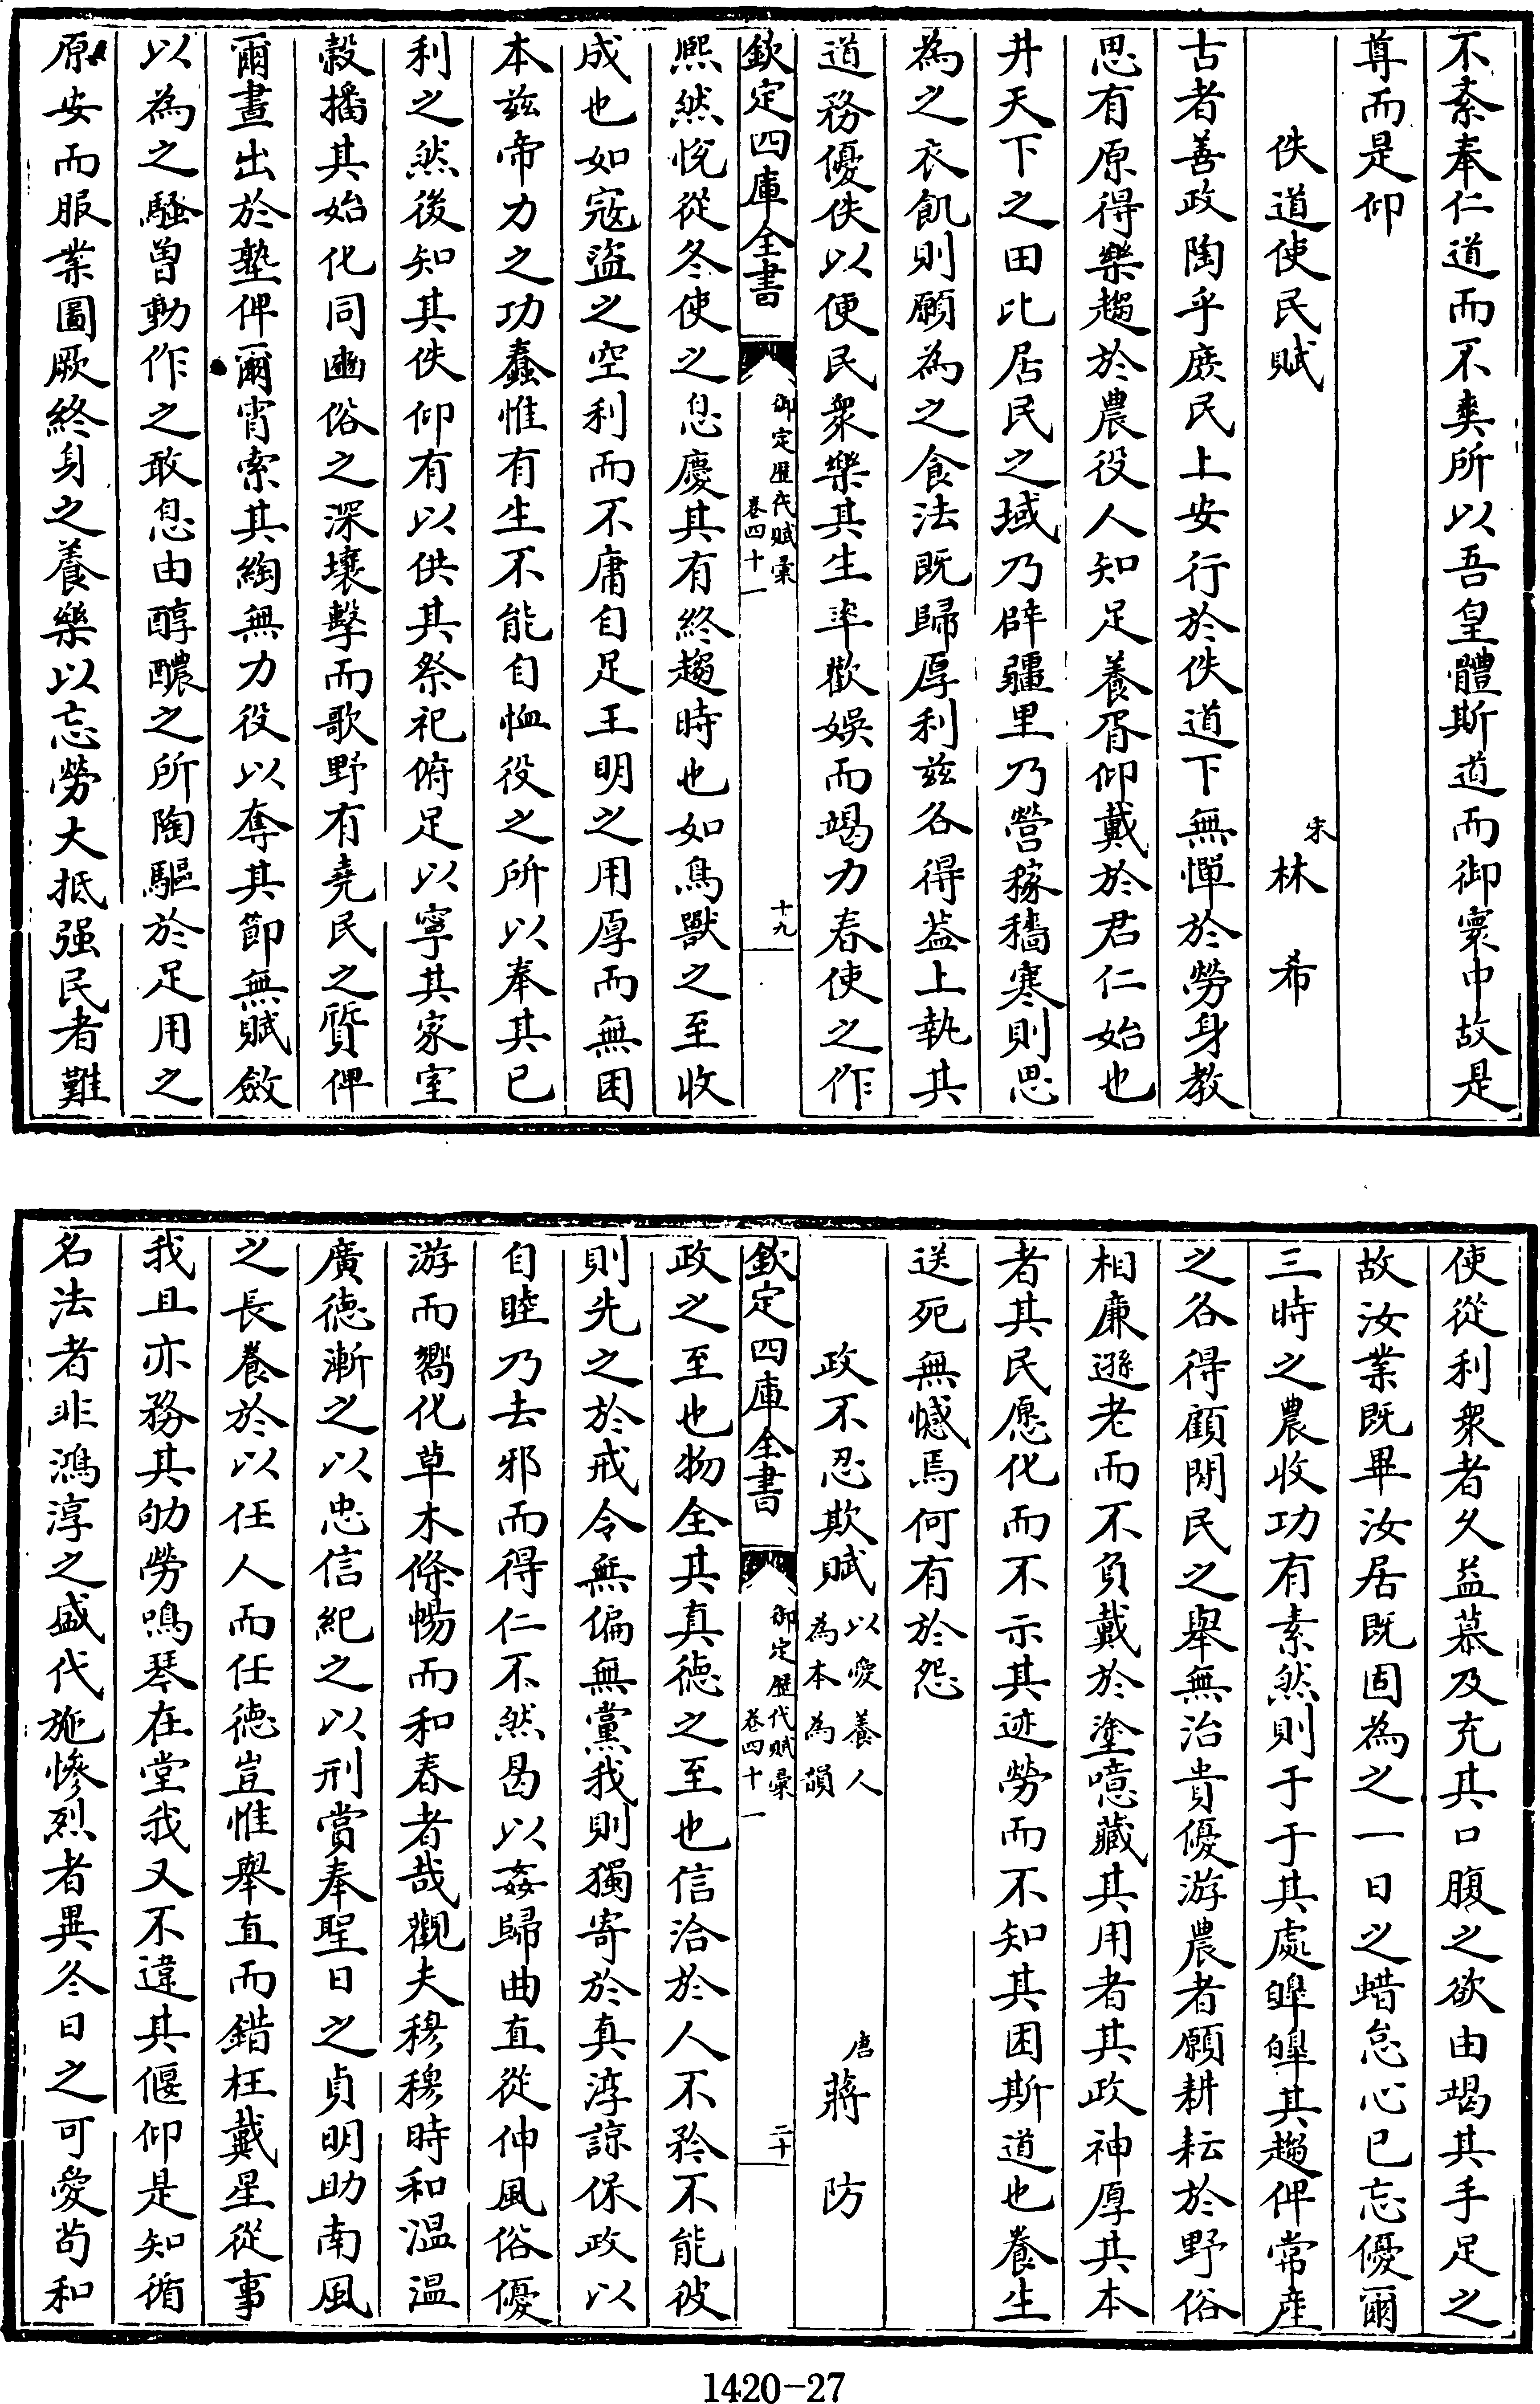 不紊奉仁道而不爽所以吾皇體斯道而御寰中故是
尊而是仰
佚道使民賦
宋林希
古者善政陶乎庶民上安行於佚道下無憚於勞身教
思有原得樂趨於農役人知足養胥仰戴於君仁始也
井天下之田比居民之域乃辟疆里乃營稼穡寒則思
為之衣飢則願為之食法既歸厚利兹各得葢上執其
道務優佚以便民衆樂其生率歡娛而竭力春使之作
欽定四庫全書
御定歷代賦彙
卷四十一
十九
熙然悅從冬使之息慶其有終趨時也如鳥獸之至收
成也如寇盜之空利而不庸自足王明之用厚而無困
本兹帝力之功蠢惟有生不能自恤役之所以奉其已
利之然後知其佚仰有以供其祭祀俯足以寧其家室
穀播其始化同豳俗之深壤擊而歌野有堯民之質俾
爾晝出於墊俾爾宵索其綯無力役以奪其節無賦斂
以為之騷曽動作之敢息由醇醲之所陶驅於足用之
原安而服業圖厥終身之養樂以忘勞大抵强民者難
使從利衆者久益慕及充其口腹之欲由竭其手足之
故汝業既畢汝居既固為之一日之蜡怠心已忘優爾
三時之農收功有素然則于于其處皥皥其趨俾常產
之各得顧閒民之舉無治貴優游農者願耕耘於野俗
相廉遜老而不負戴於塗噫藏其用者其政神厚其本
者其民愿化而不示其迹勞而不知其困斯道也養生
送死無憾焉何有於怨
政不忍欺賦
以愛養人
為本為韻
唐蔣防
欽定四庫全書
御定歷代賦彙
卷四十一
二十
政之至也物全其真徳之至也信洽於人不矜不能彼
則先之於戒令無偏無黨我則獨寄於真淳諒保政以
自睦乃去邪而得仁不然曷以姦歸曲直從伸風俗優
游而嚮化草木條暢而和春者哉觀夫穆穆時和温温
廣徳漸之以忠信紀之以刑賞奉聖日之貞明助南風
之長養於以任人而任徳豈惟舉直而錯枉戴星從事
我且亦務其劬勞鳴琴在堂我又不違其偃仰是知循
名法者非鴻淳之盛代施慘烈者異冬日之可愛苟和
1420-27